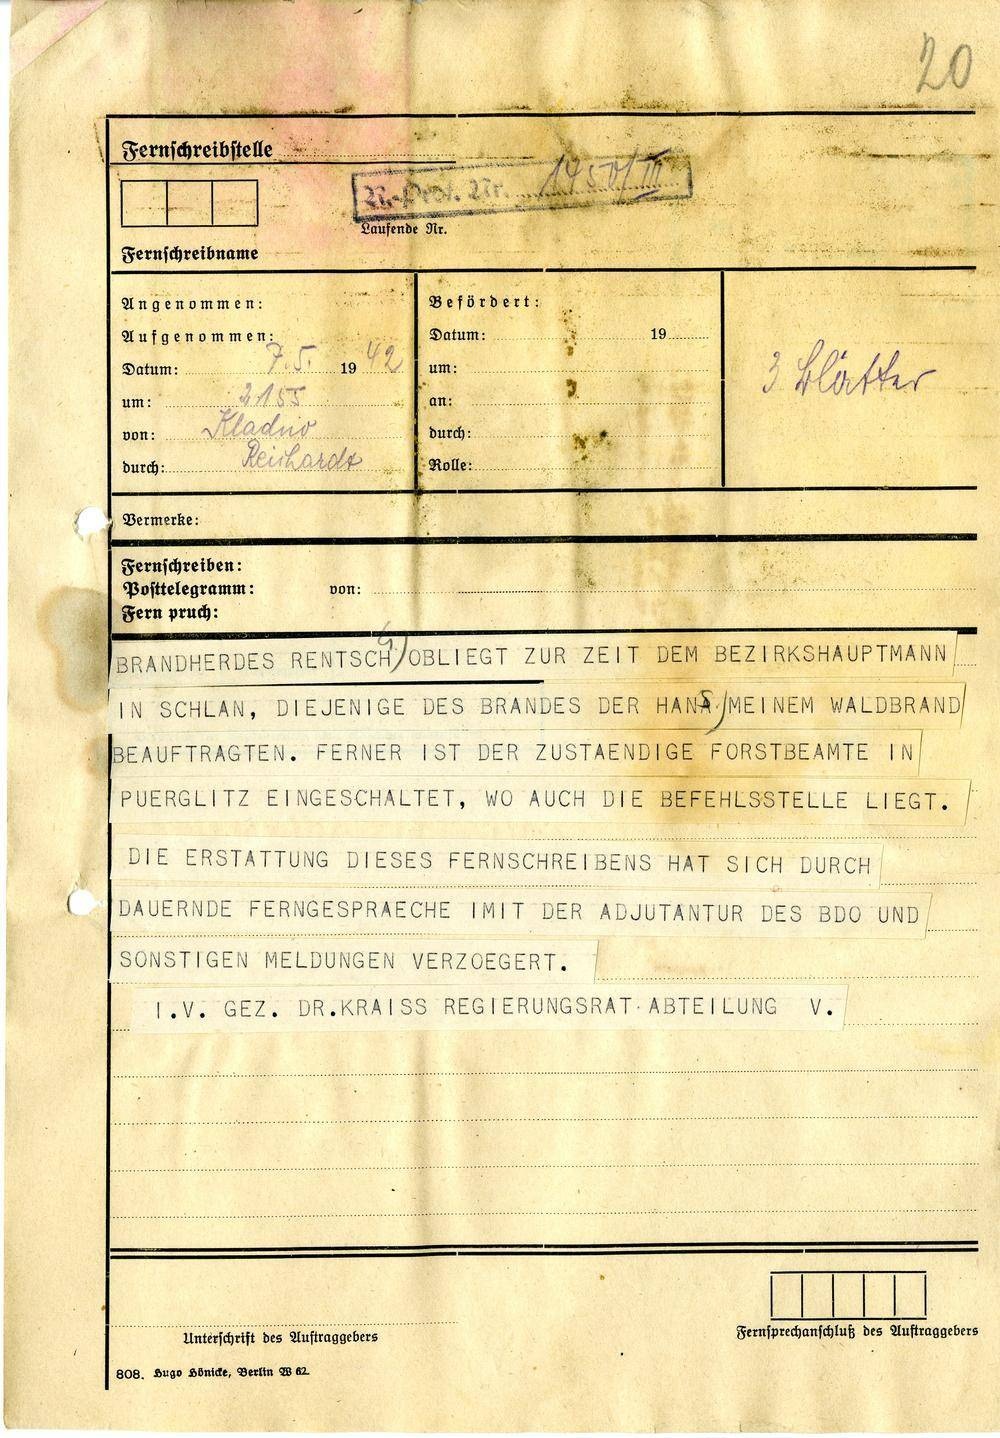 20
Fernschreibstelle
N.-Prot. Nr. 1450/III
Laufende Nr.
Fernschreibname
Angenommen:
Aufgenommen:
Datum: 7.5. 19 42
um: 2155
von: Kladno
durch: Reichardt
Befördert:
Datum: 19
um:
an:
durch:
Rolle:
3 Blätter
Vermerke:
Fernschreiben:
Posttelegramm: von:
Fern pruch:
BRANDHERDES RENTSCH) OBLIEGT ZUR ZEIT DEM BEZIRKSHAUPTMANN
IN SCHLAN, DIEJENIGE DES BRANDES DER HANS) MEINEM WALDBRAND
BEAUFTRAGTEN. FERNER IST DER ZUSTAENDIGE FORSTBEAMTE IN
PUERGLITZ EINGESCHALTET, WO AUCH DIE BEFEHLSSTELLE LIEGT.
DIE ERSTATTUNG DIESES FERNSCHREIBENS HAT SICH DURCH
DAUERNDE FERNGESPRAECHE IMIT DER ADJUTANTUR DES BDO UND
SONSTIGEN MELDUNGEN VERZOEGERT.
I.V. GEZ. DR.KRAISS REGIERUNGSRAT ABTEILUNG V.
Unterschrift des Auftraggebers
Fernsprechanschluß des Auftraggebers
808. Hugo Hönicke, Berlin W 62.